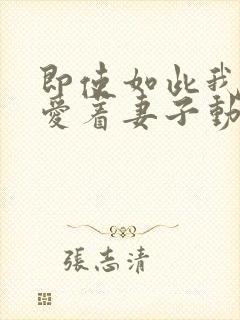 即使如此我
愛着妻子動
張志清